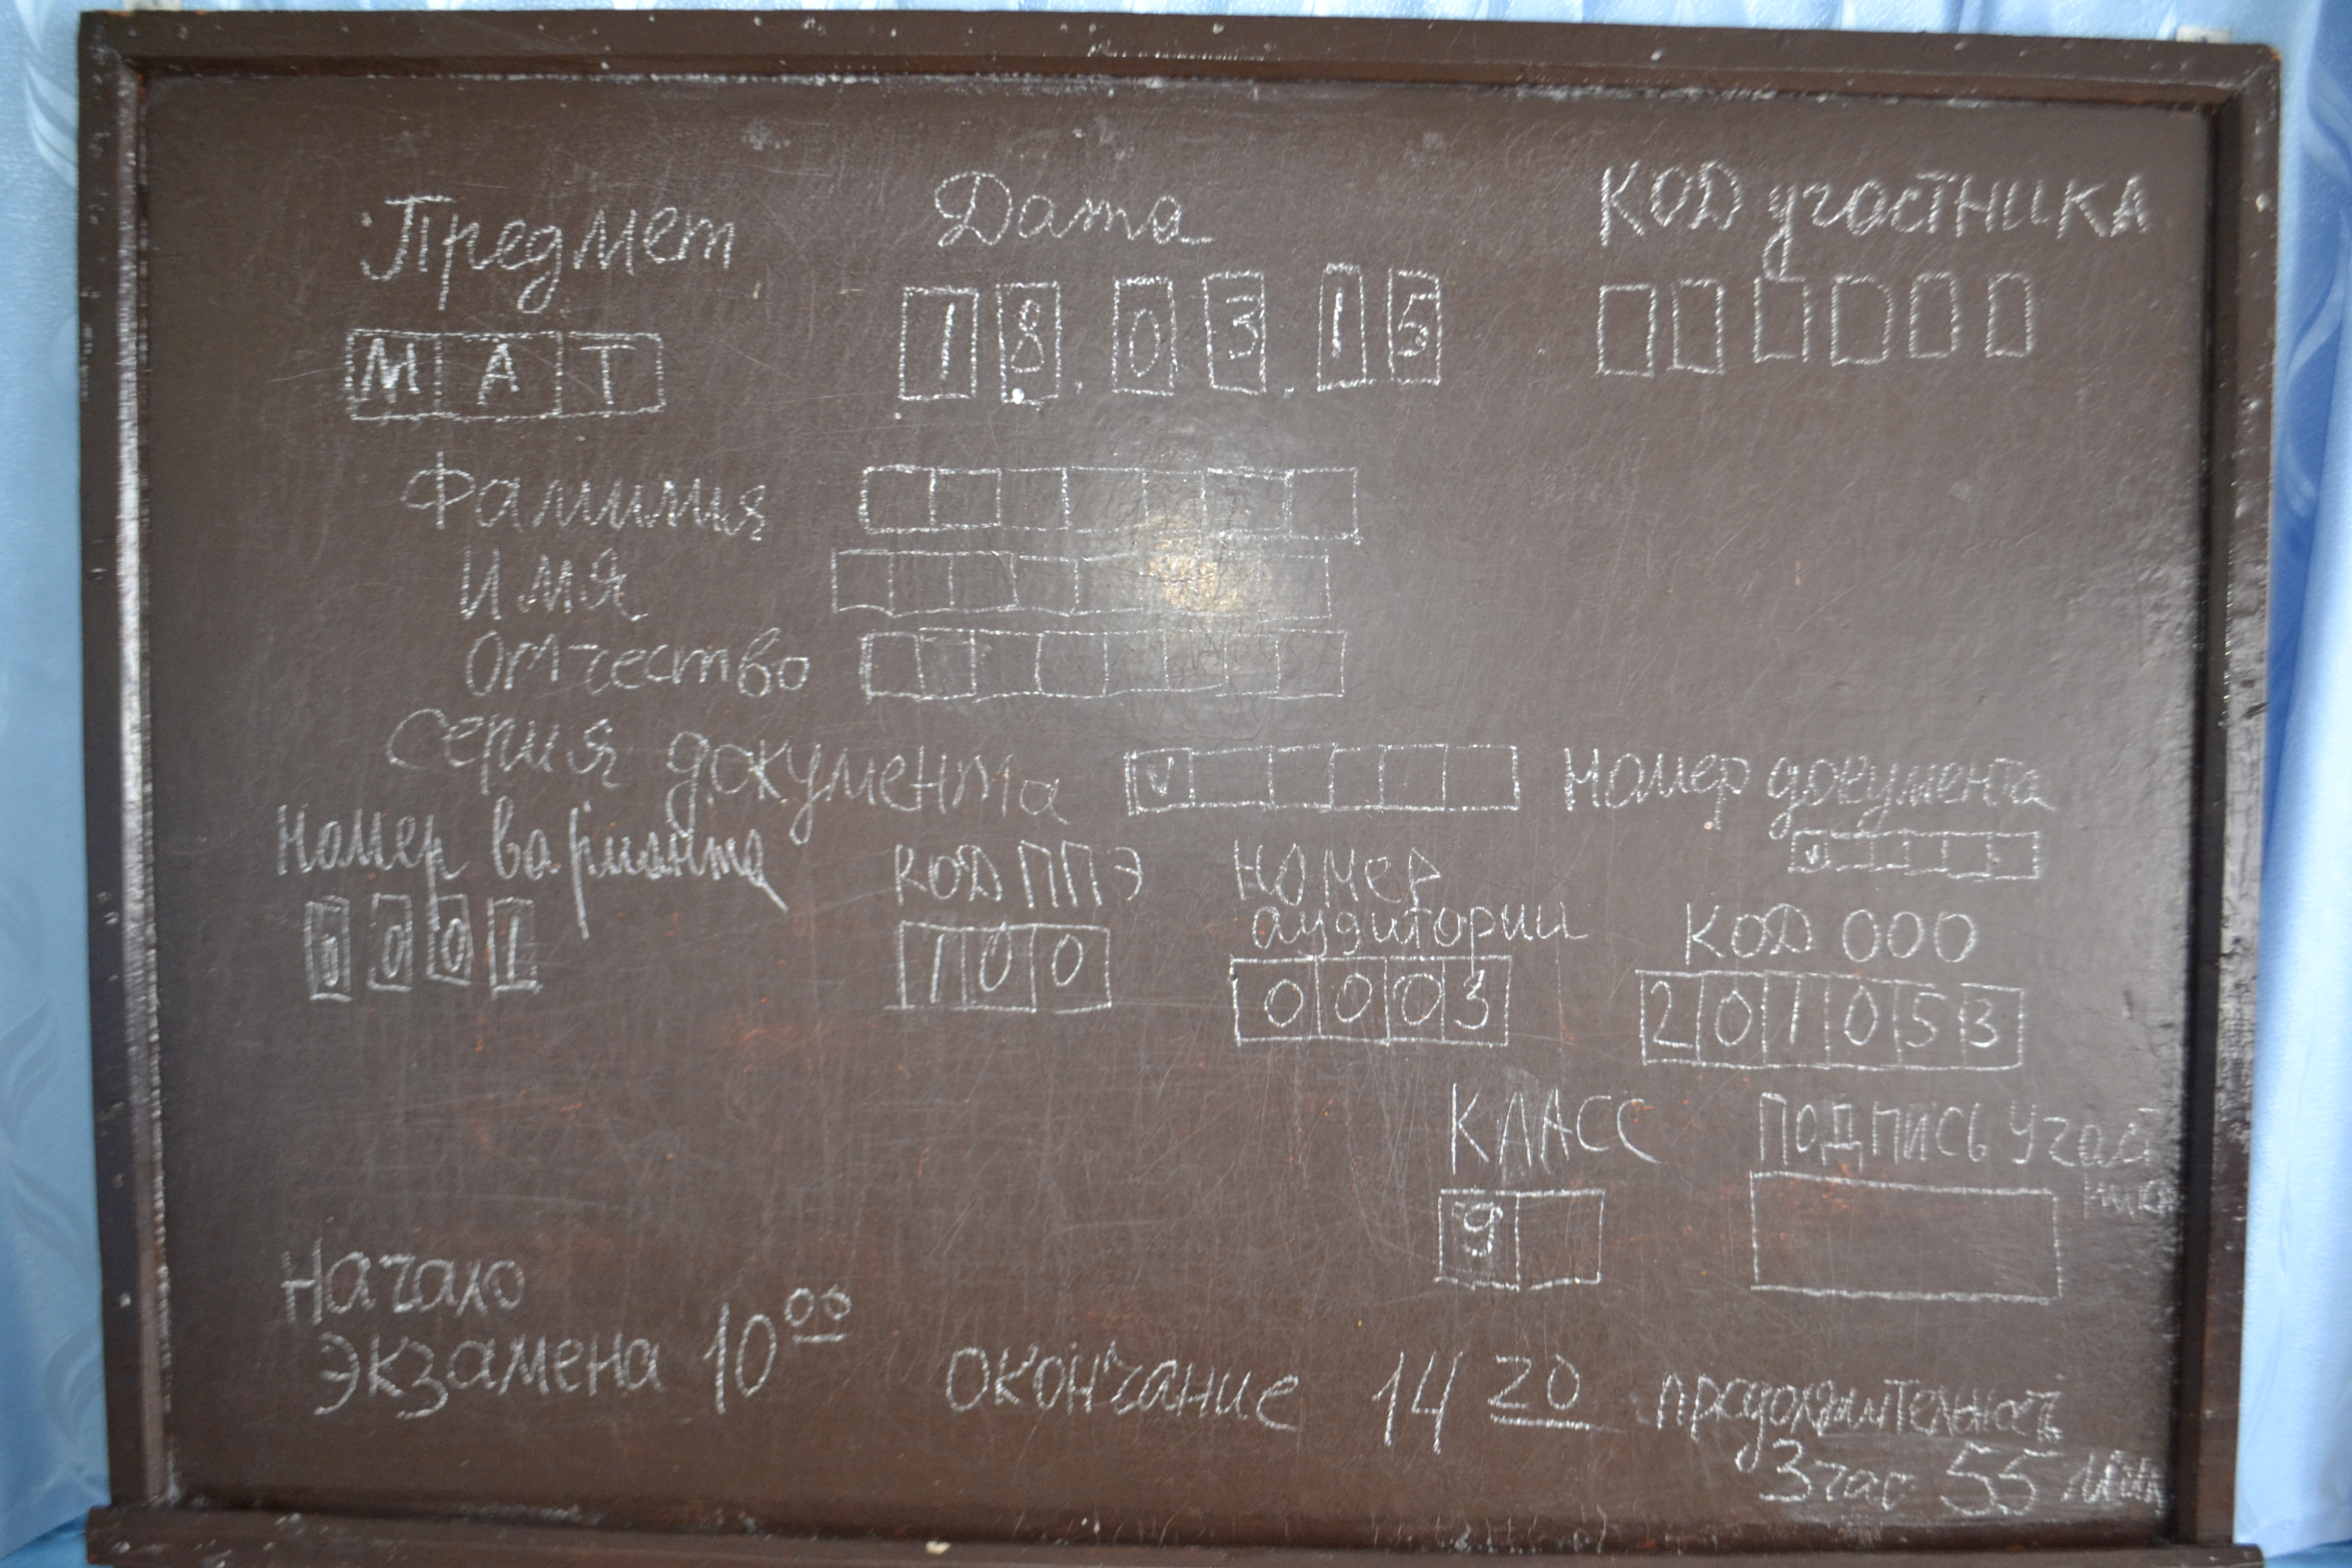 Предмет
Дата
КОД участника
МАТ
18.03.15
Фамилия
Имя
Отчество
Серия документа V
Номер документа
V
Номер варианта
КОД ППЭ
Номер
аудитории
КОД ООО
0001
100
0003
201053
КЛАСС
подпись участ
ника
9
Начало
Экзамена 10 00
Окончание 14 20
продолжительность
3 час 55 мин